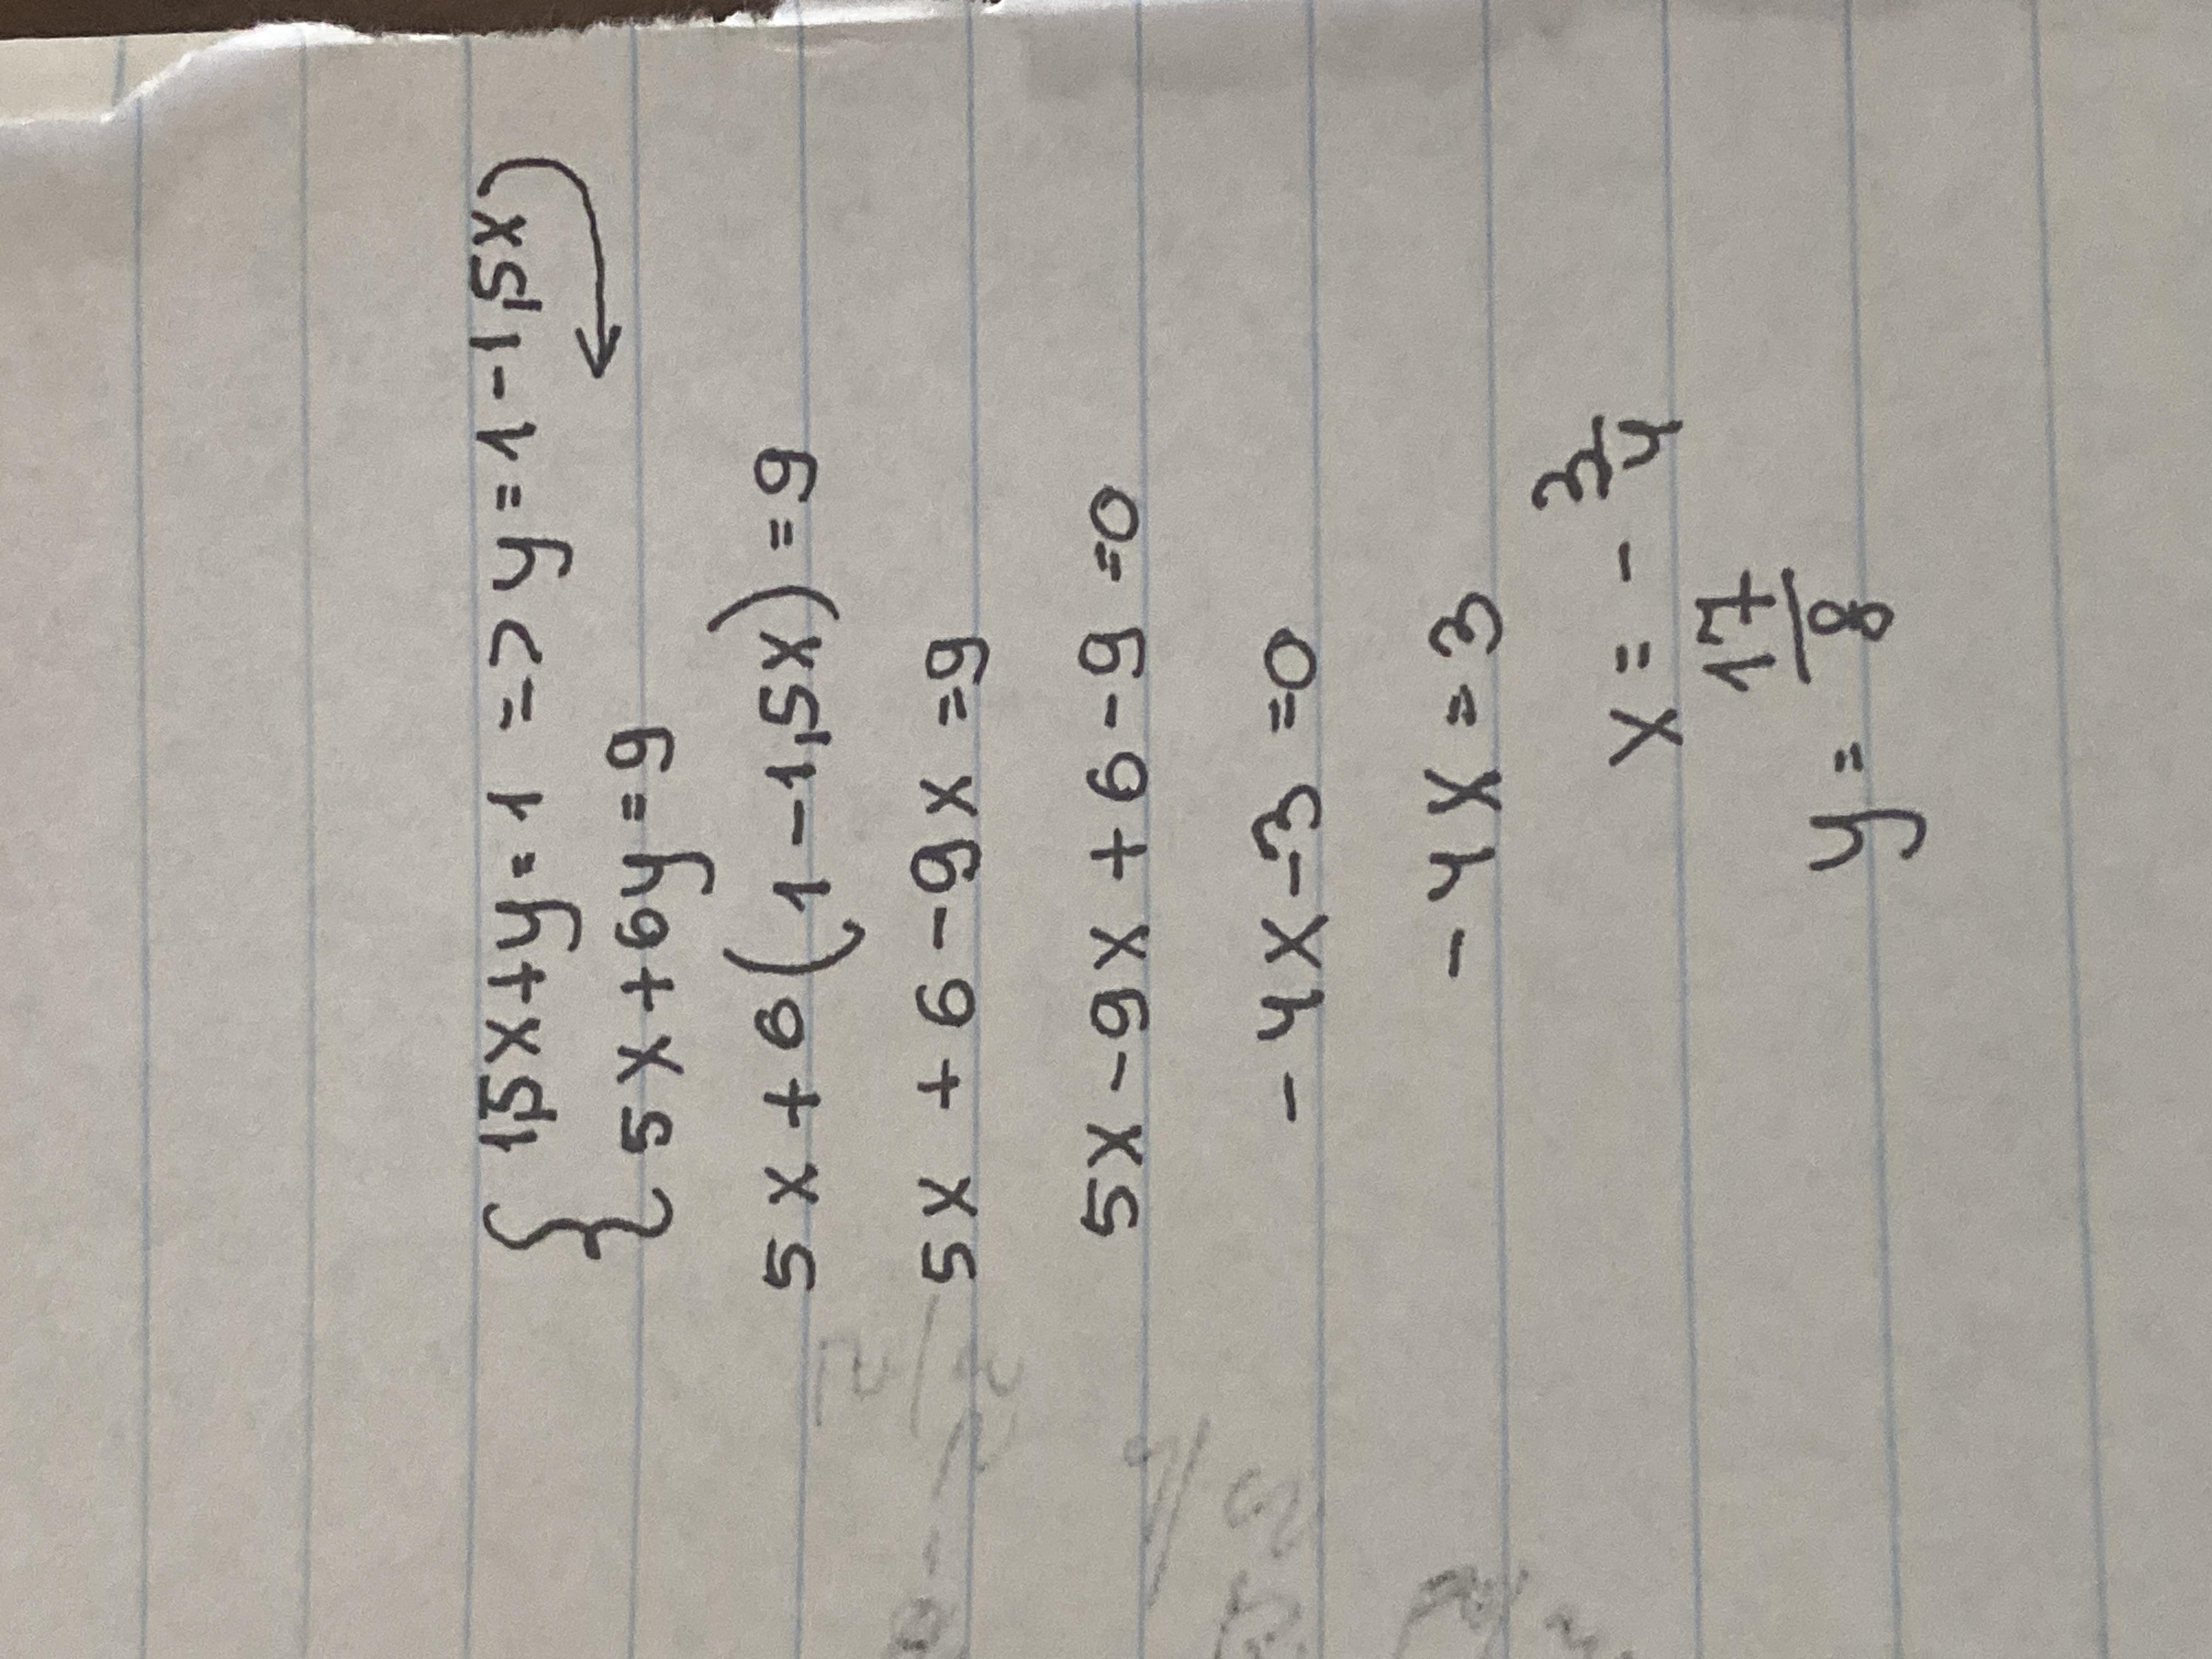 { 1,5x+y=1 => y=1-1,5x
5x+6y=9
5x+6(1-1,5x)=9
5x+6-9x=9
5x-9x+6-9=0
-4x-3=0
-4x=3
x=-3/4
y=17/8